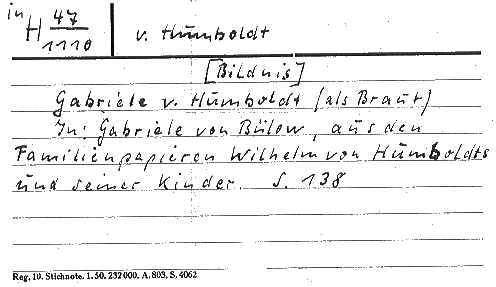 in H 47/1110 v. Humboldt
[Bildnis]
Gabriele v. Humboldt (als Braut)
In: Gabriele von Bülow, aus den
Familienpapieren Wilhelm von Humboldts
und seiner Kinder. S. 138
Reg. 10. Stichnote. 1. 50. 232 000. A. 803. S. 4062